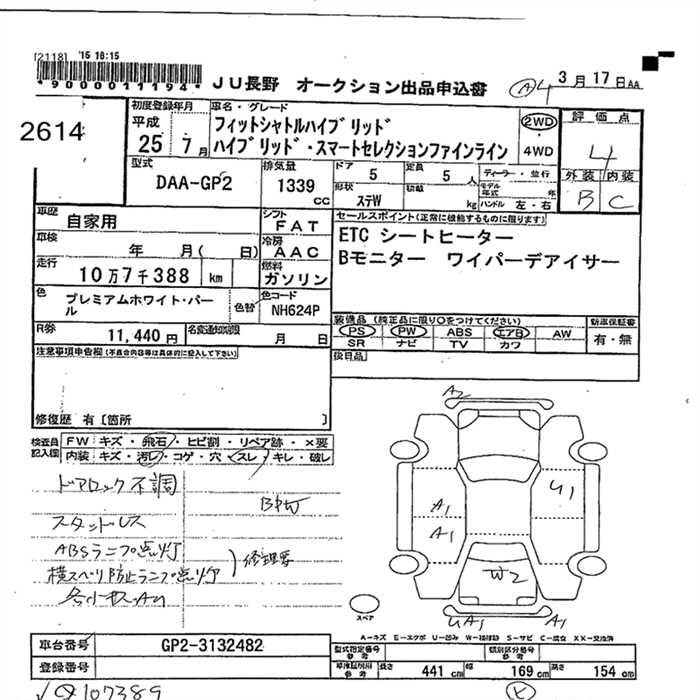 [2118] '15 16:15
*9000011194*
JU長野 オークション出品申込書
A4 3月17日AA
2614
初度登録年月
平成
25年7月
車名・グレード
フィットシャトルハイブリッド
ハイブリッド・スマートセレクションファインライン
2WD
4WD
評価点
4
外装 内装
B C
型式
DAA-GP2
排気量
1339
cc
ドア
5
定員
5人
形状
ステW
積載
kg
ディーラー・並行
モデル年式
年
ハンドル 左・右
車歴
自家用
シフト
FAT
車検
年 月( 日)
冷房
AAC
走行
10万7千388 km
燃料
ガソリン
色
プレミアムホワイト・パール
色替
色コード
NH624P
R券
11,440円
名変通知期限
月 日
セールスポイント(正常に機能するものに限ります)
ETC シートヒーター
Bモニター ワイパーデアイサー
装備品 (純正品に限り○をつけてください)
PS PW ABS エアB AW
SR ナビ TV カワ
新車保証書
有・無
後日品
注意事項申告欄(不具合内容等は具体的に記入して下さい)
修復歴 有 [箇所 ]
検査員記入欄
FW キズ・飛石・ヒビ割・リペア跡・×要
内装 キズ・汚レ・コゲ・穴・スレ・キレ・破レ
ドアロック不調
スタッドレス
ABSランプ点灯
横スベリ防止ランプ点灯
修理要
A2
A1
A1
U1
W2
UA1
A1
スペア
A-キズ E-エクボ U-凹み W-補修跡 S-サビ C-腐食 XX-交換済
車台番号
GP2-3132482
登録番号
型式指定番号
参考
類別区分番号
参考
車検証別用
参考
長さ 441cm 幅 169cm 高さ 154cm
107389